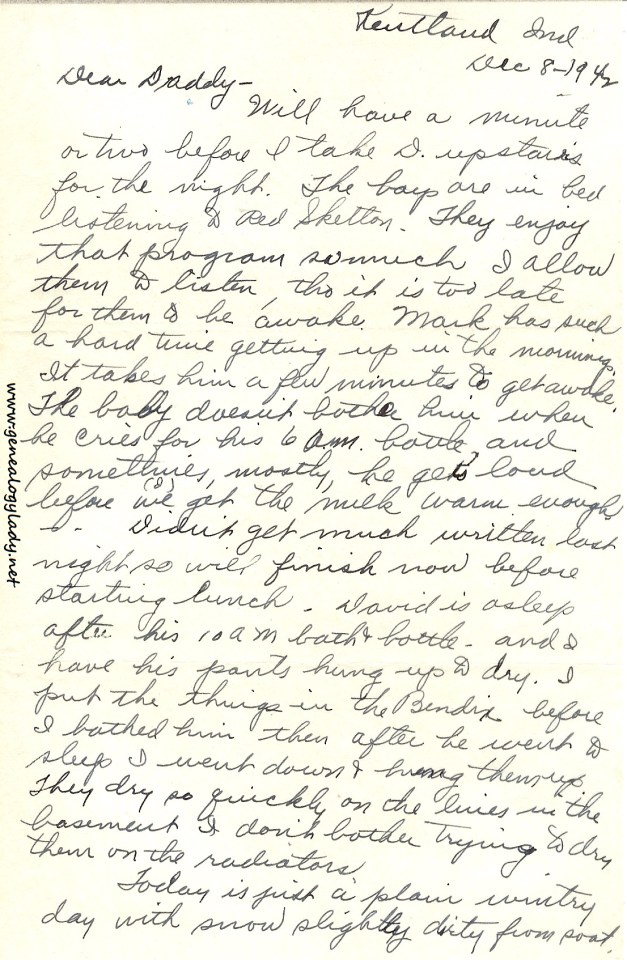 Kentland Ind
Dec 8-1942
Dear Daddy-
Will have a minute
or two before I take D. upstairs
for the night. The boys are in bed
listening to Red Skelton. They enjoy
that program so much I allow
them to listen, tho it is too late
for them to be awake. Mark has such
a hard time getting up in the mornings.
It takes him a few minutes to get awake.
The baby doesn't bother him when
he cries for his 6 a.m. bottle and
sometimes, mostly, he gets loud
before we (I) get the milk warm enough
Didn't get much written last
night so will finish now before
starting lunch. David is asleep
after his 10 am bath & bottle- and I
have his pants hung up to dry. I
put the things in the Bendix before
I bathed him then after he went to
sleep I went down & hung them up.
They dry so quickly on the lines in the
basement I don't bother trying to dry
them on the radiators
Today is just a plain wintry
day with snow slightly dirty from soot.
www.genealogylady.net